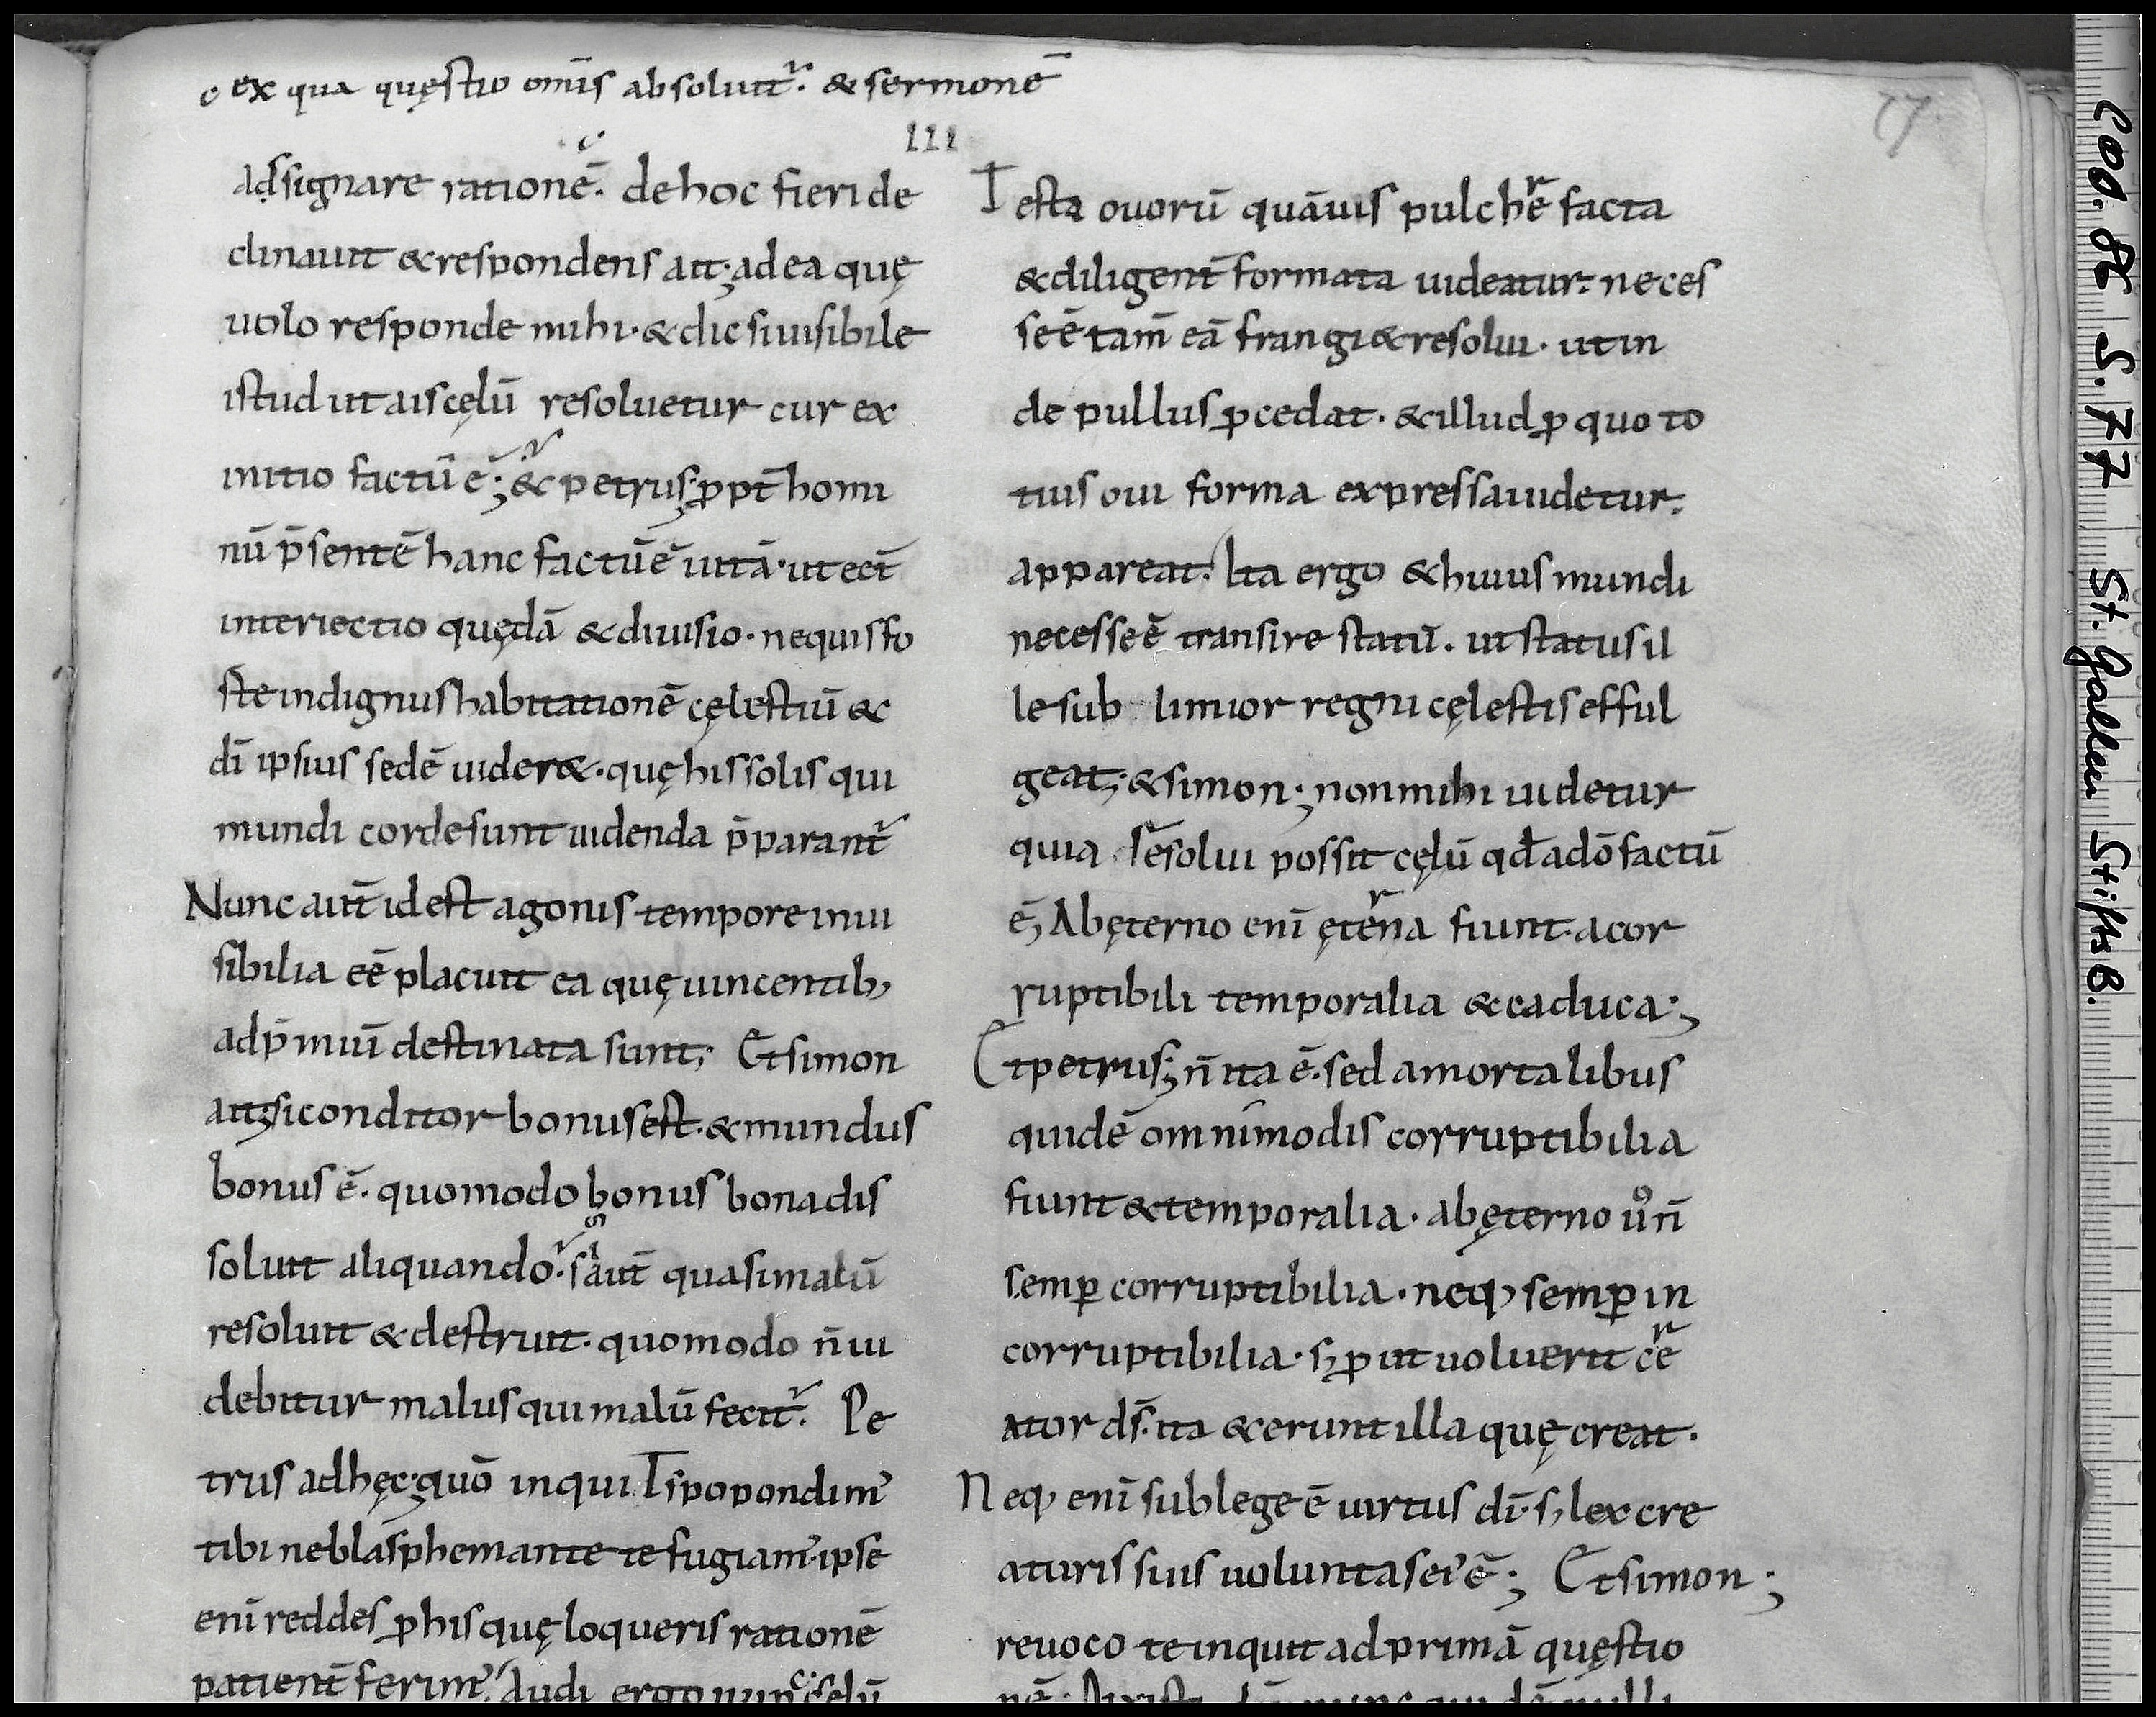 ex qua quęstio om̄is absoluit̄. & sermonē
111
77.
adsignare rationē. de hoc fieri de
clinauit & respondens ait; ad ea quę
uolo responde mihi. & dic si uisibile
istud ut ais cęlū resoluetur cur ex
initio factū ē; & petrus; ꝓpt̄ homi
nū p̄sentē hanc factū ē uitā. ut eet̄
interiectio quędā & diuisio. nequis fo
ste indignus habitationē cęlestiū &
dī ipsius sedē uider&. quę his solis qui
mundi corde sunt uidenda p̄parant̄
Nunc aut̄ id est agonis tempore inui
sibilia eē placuit ea quę uincentib;
ad p̄miū destinata sunt; Et simon
ait; si conditor bonus est. & mundus
bonus ē. quomodo bonus bona dis
soluit aliquando. s aut̄ quasi malū
resoluit & destruit. quomodo n̄ ui
debitur malus qui malū fecit. Pe
trus ad hęc; quō inquit spopondim᾽
tibi ne blasphemante te fugiam᾽ ipse
enī reddes ꝑ his quę loqueris rationē
patient̄ ferim᾽. Audi ergo nunc si cęlū
Testa ouorū quāuis pulchrē facta
& diligent̄ formata uideatur. neces
se ē tam̄ eā frangi & resolui. ut in
de pullus ꝓcedat. & illud ꝓ quo to
tius oui forma expressa uidetur.
appareat. Ita ergo & huius mundi
necesse ē transire statū. ut status il
le sub limior regni cęlestis efful
geat; & simon; non mihi uidetur
quia resolui possit cęlū qd̄ a dō factū
ē; Ab ęterno enī ęterna fiunt. a cor
ruptibili temporalia & caduca;
Et petrus; n̄ ita ē. sed a mortalibus
quidē omnimodis corruptibilia
fiunt & temporalia. ab ęterno uͦ n̄
semꝑ corruptibilia. neq; semꝑ in
corruptibilia. s; ꝓ ut uoluerit cre
ator dś. ita & erunt illa quę creat.
Neq; enī sub lege ē uirtus dī. s; lex cre
aturis suis uoluntas ei᾽ ē; Et simon;
reuoco te inquit ad primā quęstio
COD. 86 S. 77 St. Gallen StiftsB.